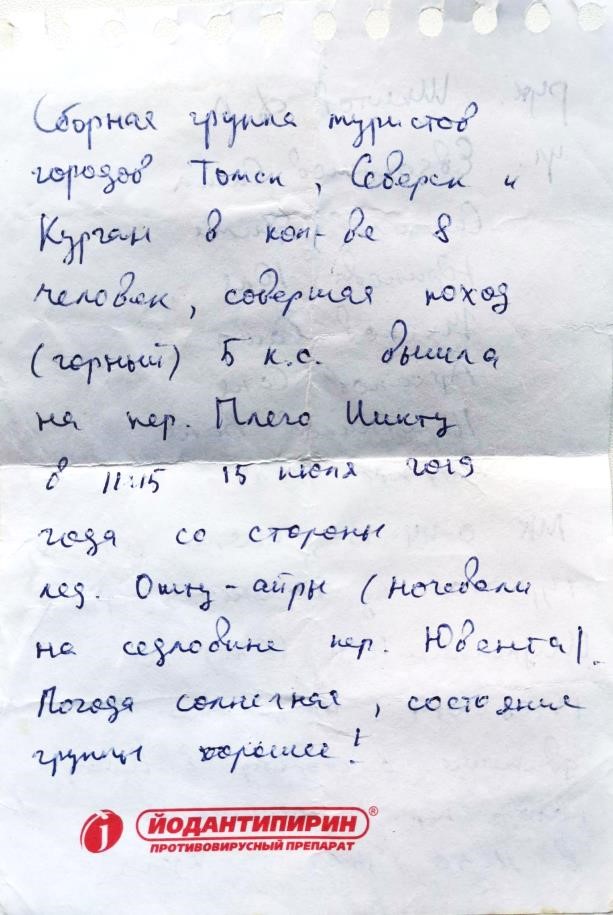 Сборная группа туристов
городов Томск, Северск и
Курган в кол-ве 8
человек, совершая поход
(горный) 5 к.с. вышла
на пер. Плечо Иикту
в 11:15 15 июля 2019
года со стороны
лед. Ошту-айры (ночевали
на седловине пер. Ювента).
Погода солнечная, состояние
группы хорошее!
ЙОДАНТИПИРИН®
ПРОТИВОВИРУСНЫЙ ПРЕПАРАТ